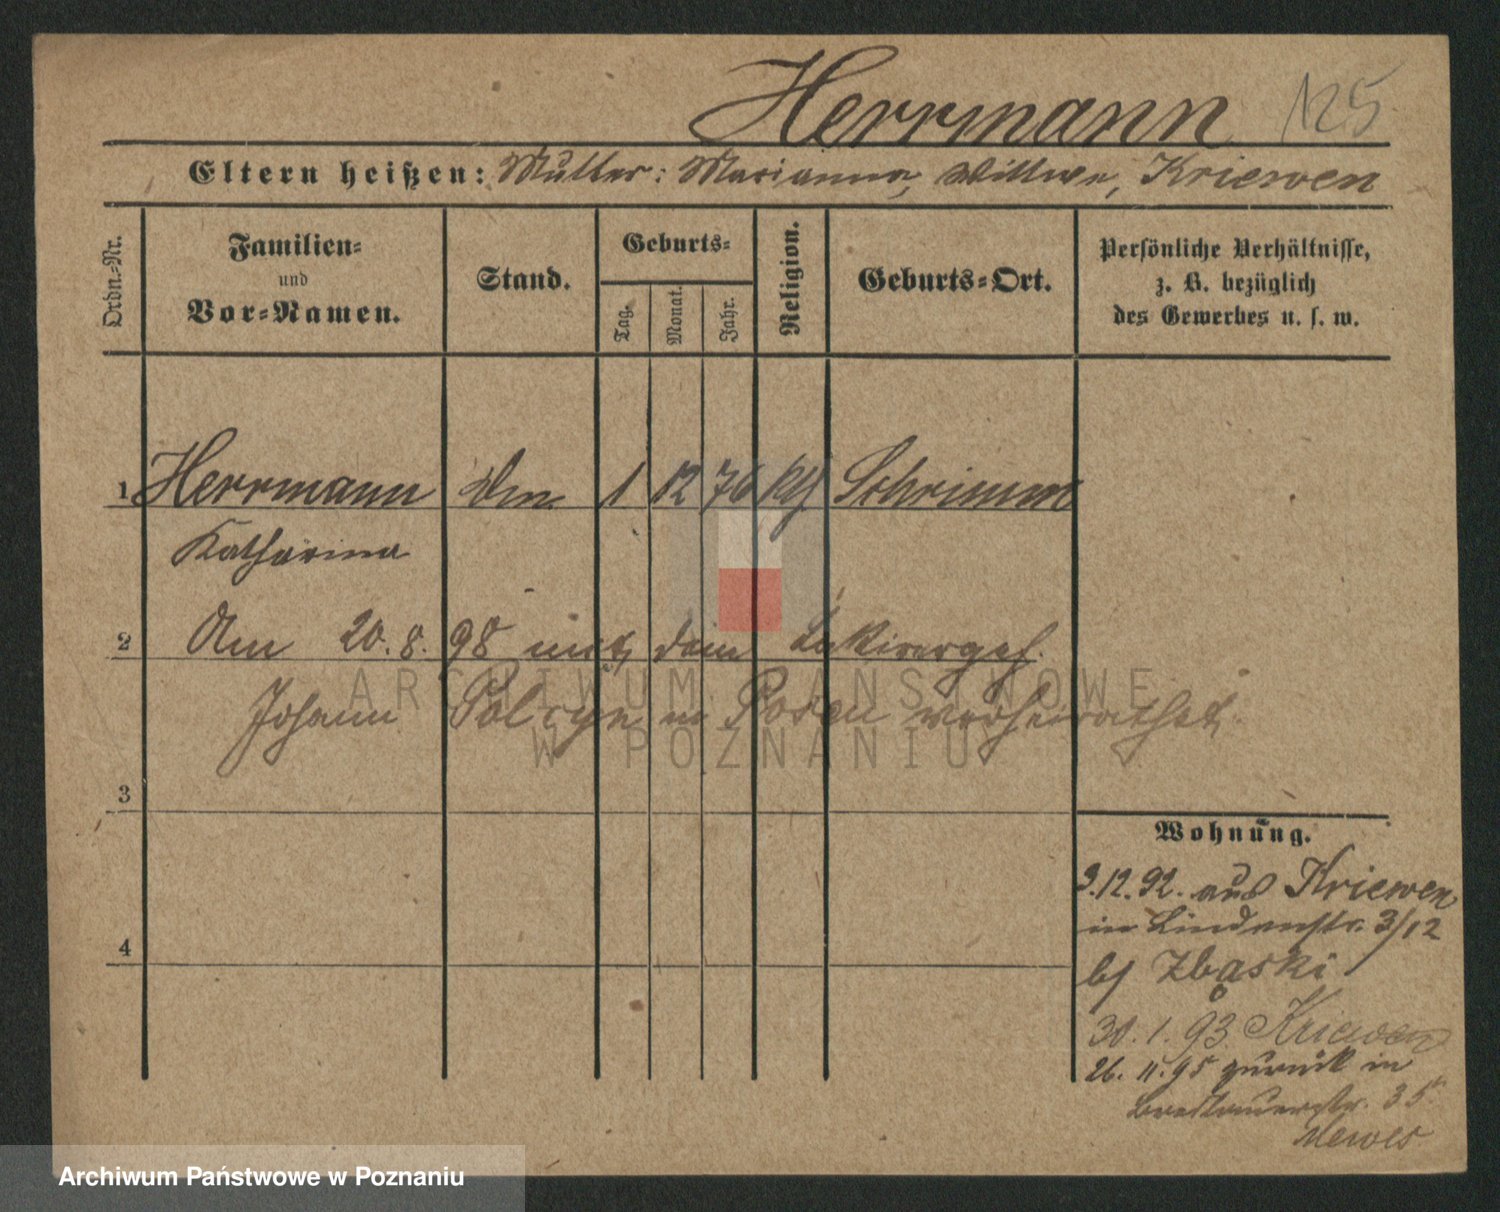 Herrmann 125
Eltern heißen: Mutter: Marianna, Wittwe, Kriewen
Ordn.-Nr.
Familien-
und
Vor-Namen.
Stand.
Geburts-
Tag.
Monat.
Jahr.
Religion.
Geburts-Ort.
Persönliche Verhältnisse,
z. B. bezüglich
des Gewerbes u. s. w.
1 Herrmann 1 12 76 Schrimm
Katharina
2 Am 20.8.98 mit dem
Johann in Posen verheirathet.
ARCHIWUM PAŃSTWOWE
W POZNANIU
3
4
Wohnung.
3.12.92. aus Kriewen
in Lindenstr. 3/12
b/ Zbąski
30.1.93 Kriewen
26.11.95 zurück in
Breslauerstr. 35
Mewes
Archiwum Państwowe w Poznaniu